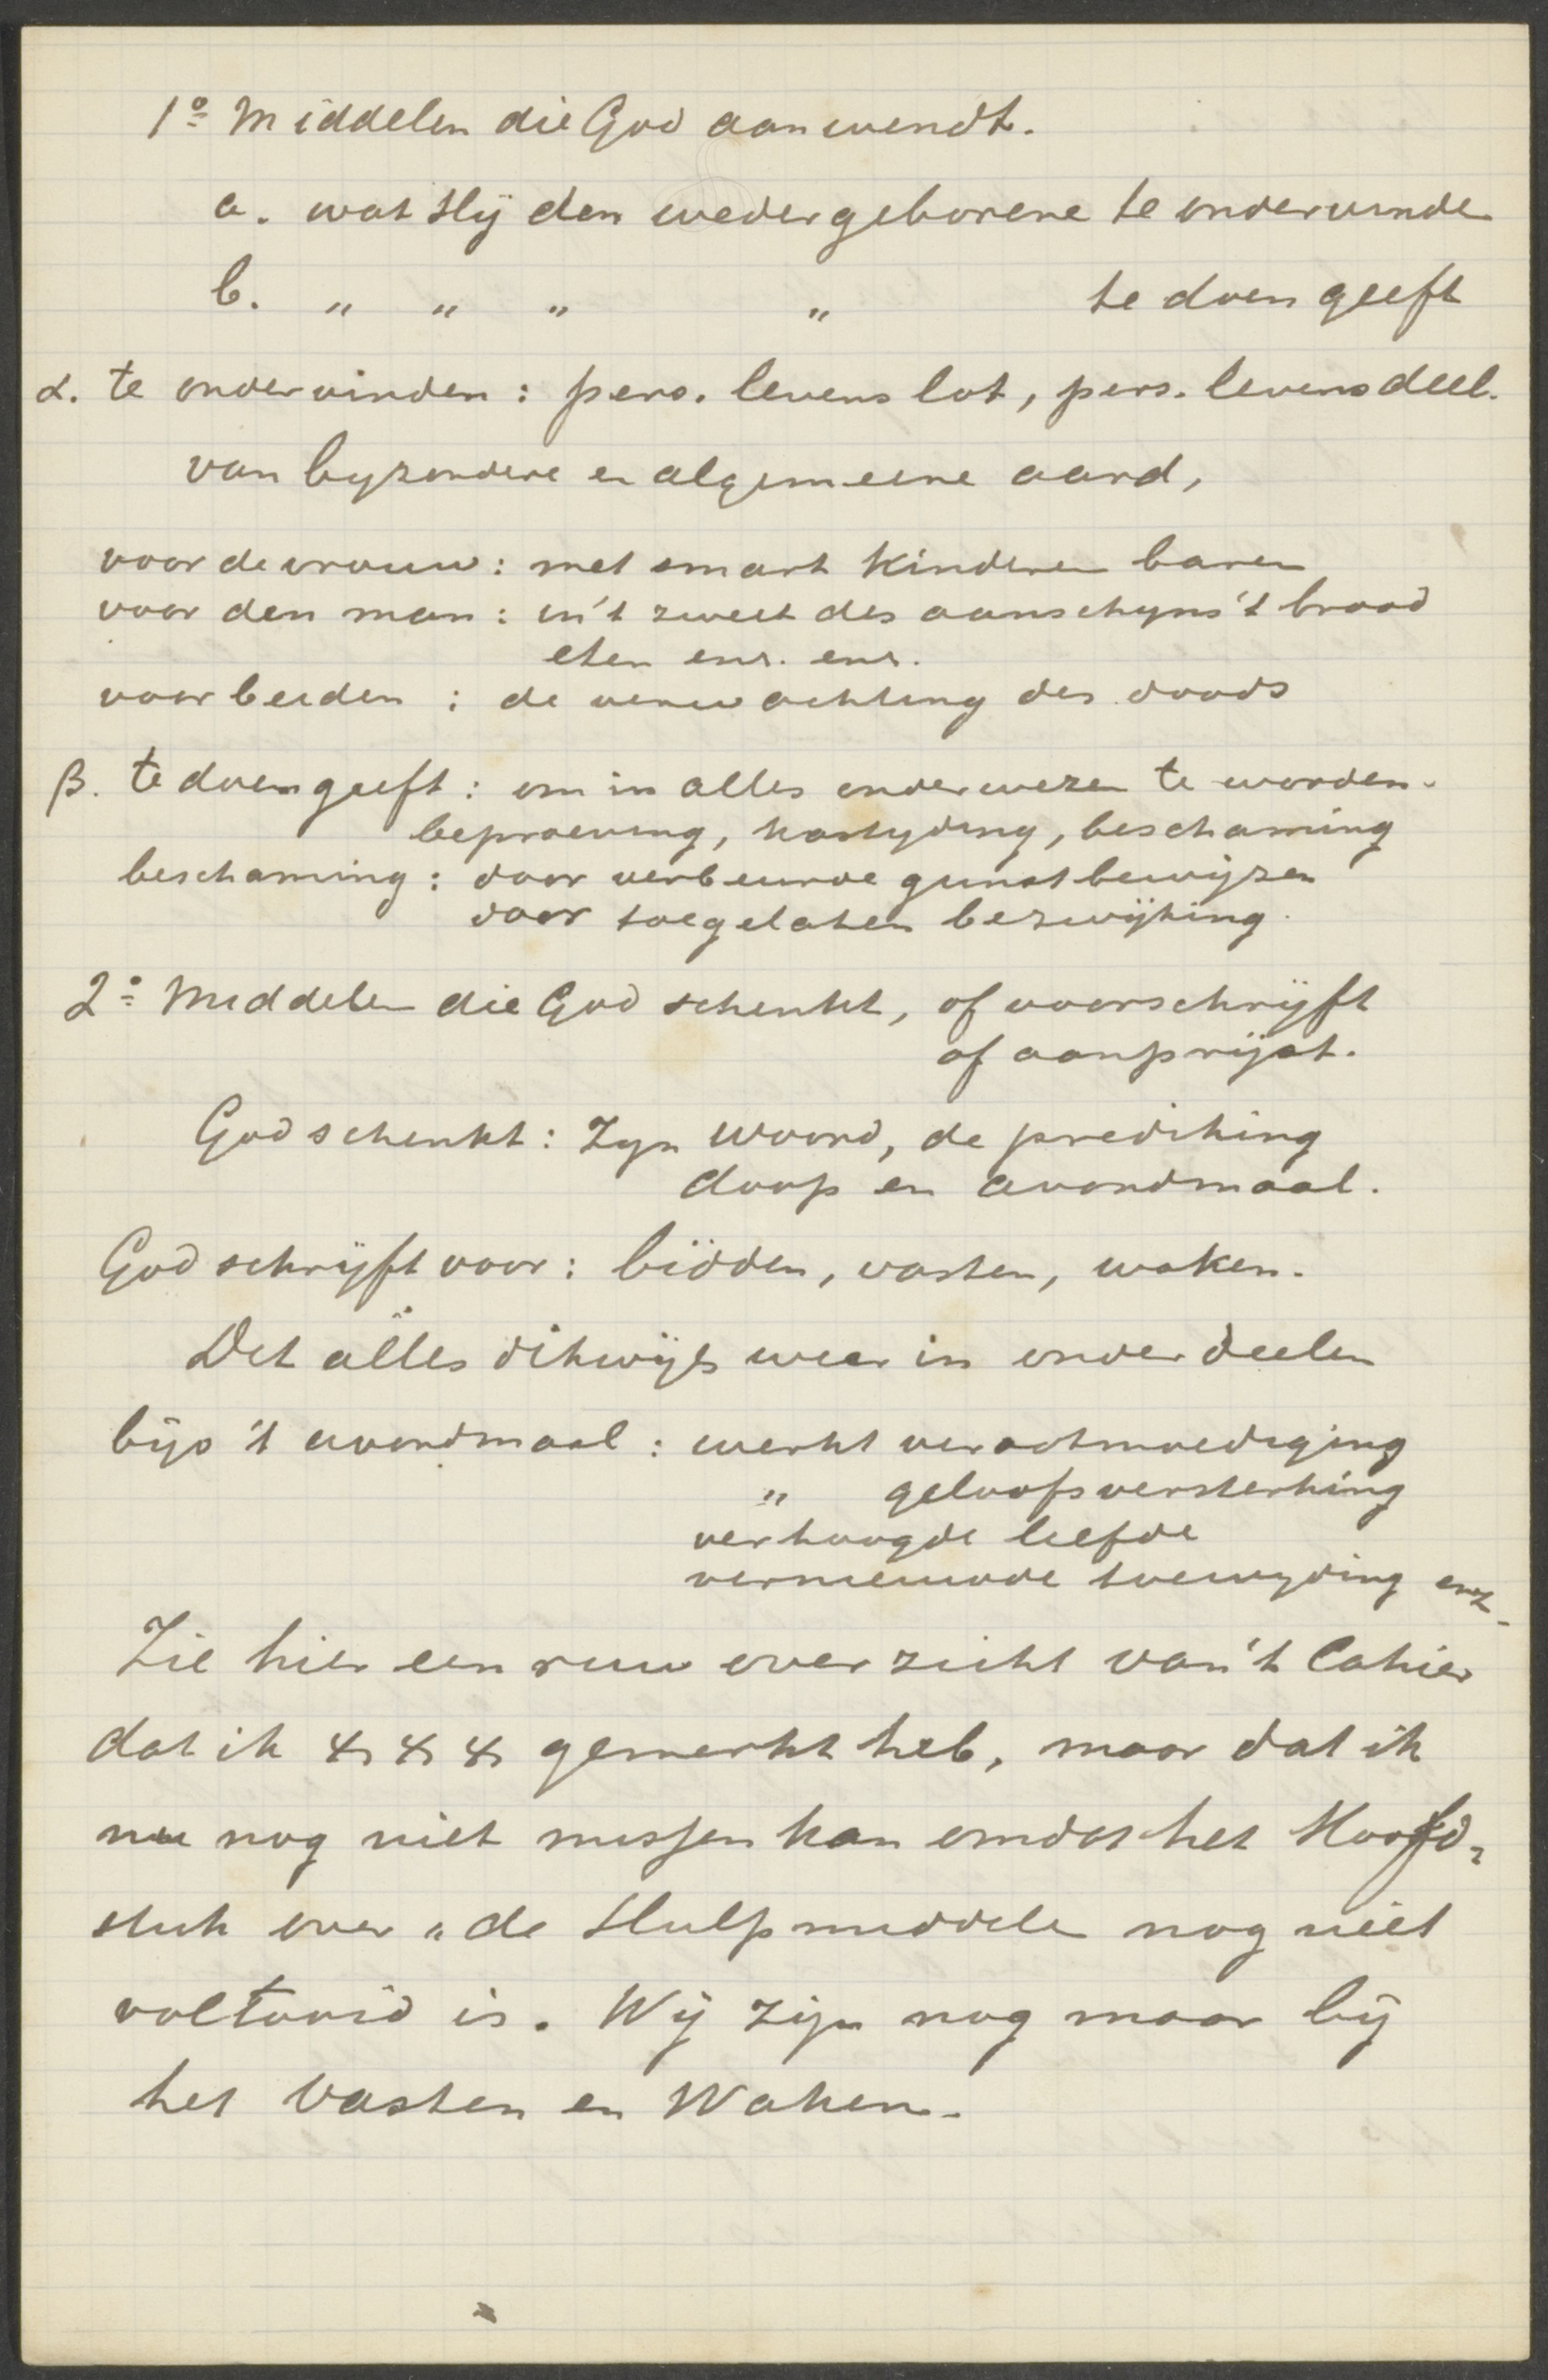 1º Middelen die God aanwendt.
a. wat Hij den wedergeborene te ondervinde
b. " " " " te doen geeft
α. te ondervinden : pers. levens lot, pers. levensdeel.
van byzondere en algemeene aard,
voor de vrouw : met smart Kinderen baren
voor den man : in 't zweet des aanschyns 't brood
eten enz. enz.
voor beiden : de verwachting des doods
β. te doen geeft : om in alles onderwezen te worden.
beproeving, kastyding, beschaming
beschaming : door verbeurde gunstbewijzen
door toegelaten bezwijking.
2º Middelen die God schenkt, of voorschrijft
of aanprijst.
God schenkt : Zyn Woord, de prediking
doop en avondmaal.
God schrijft voor : bidden, vasten, waken.
Dit alles dikwijls weer in onderdeelen
bijv 't avondmaal : werkt verootmoediging
" geloofsversterking
verhoogde liefde
vernieuwde toewyding enz.
Zie hier een ruw overzicht van 't Cahier
dat ik gemerkt heb, maar dat ik
nu nog niet missen kan omdat het Hoofd=
stuk over „de Hulpmiddelen nog niet
voltooid is. Wij zijn nog maar bij
het Vasten en Waken.